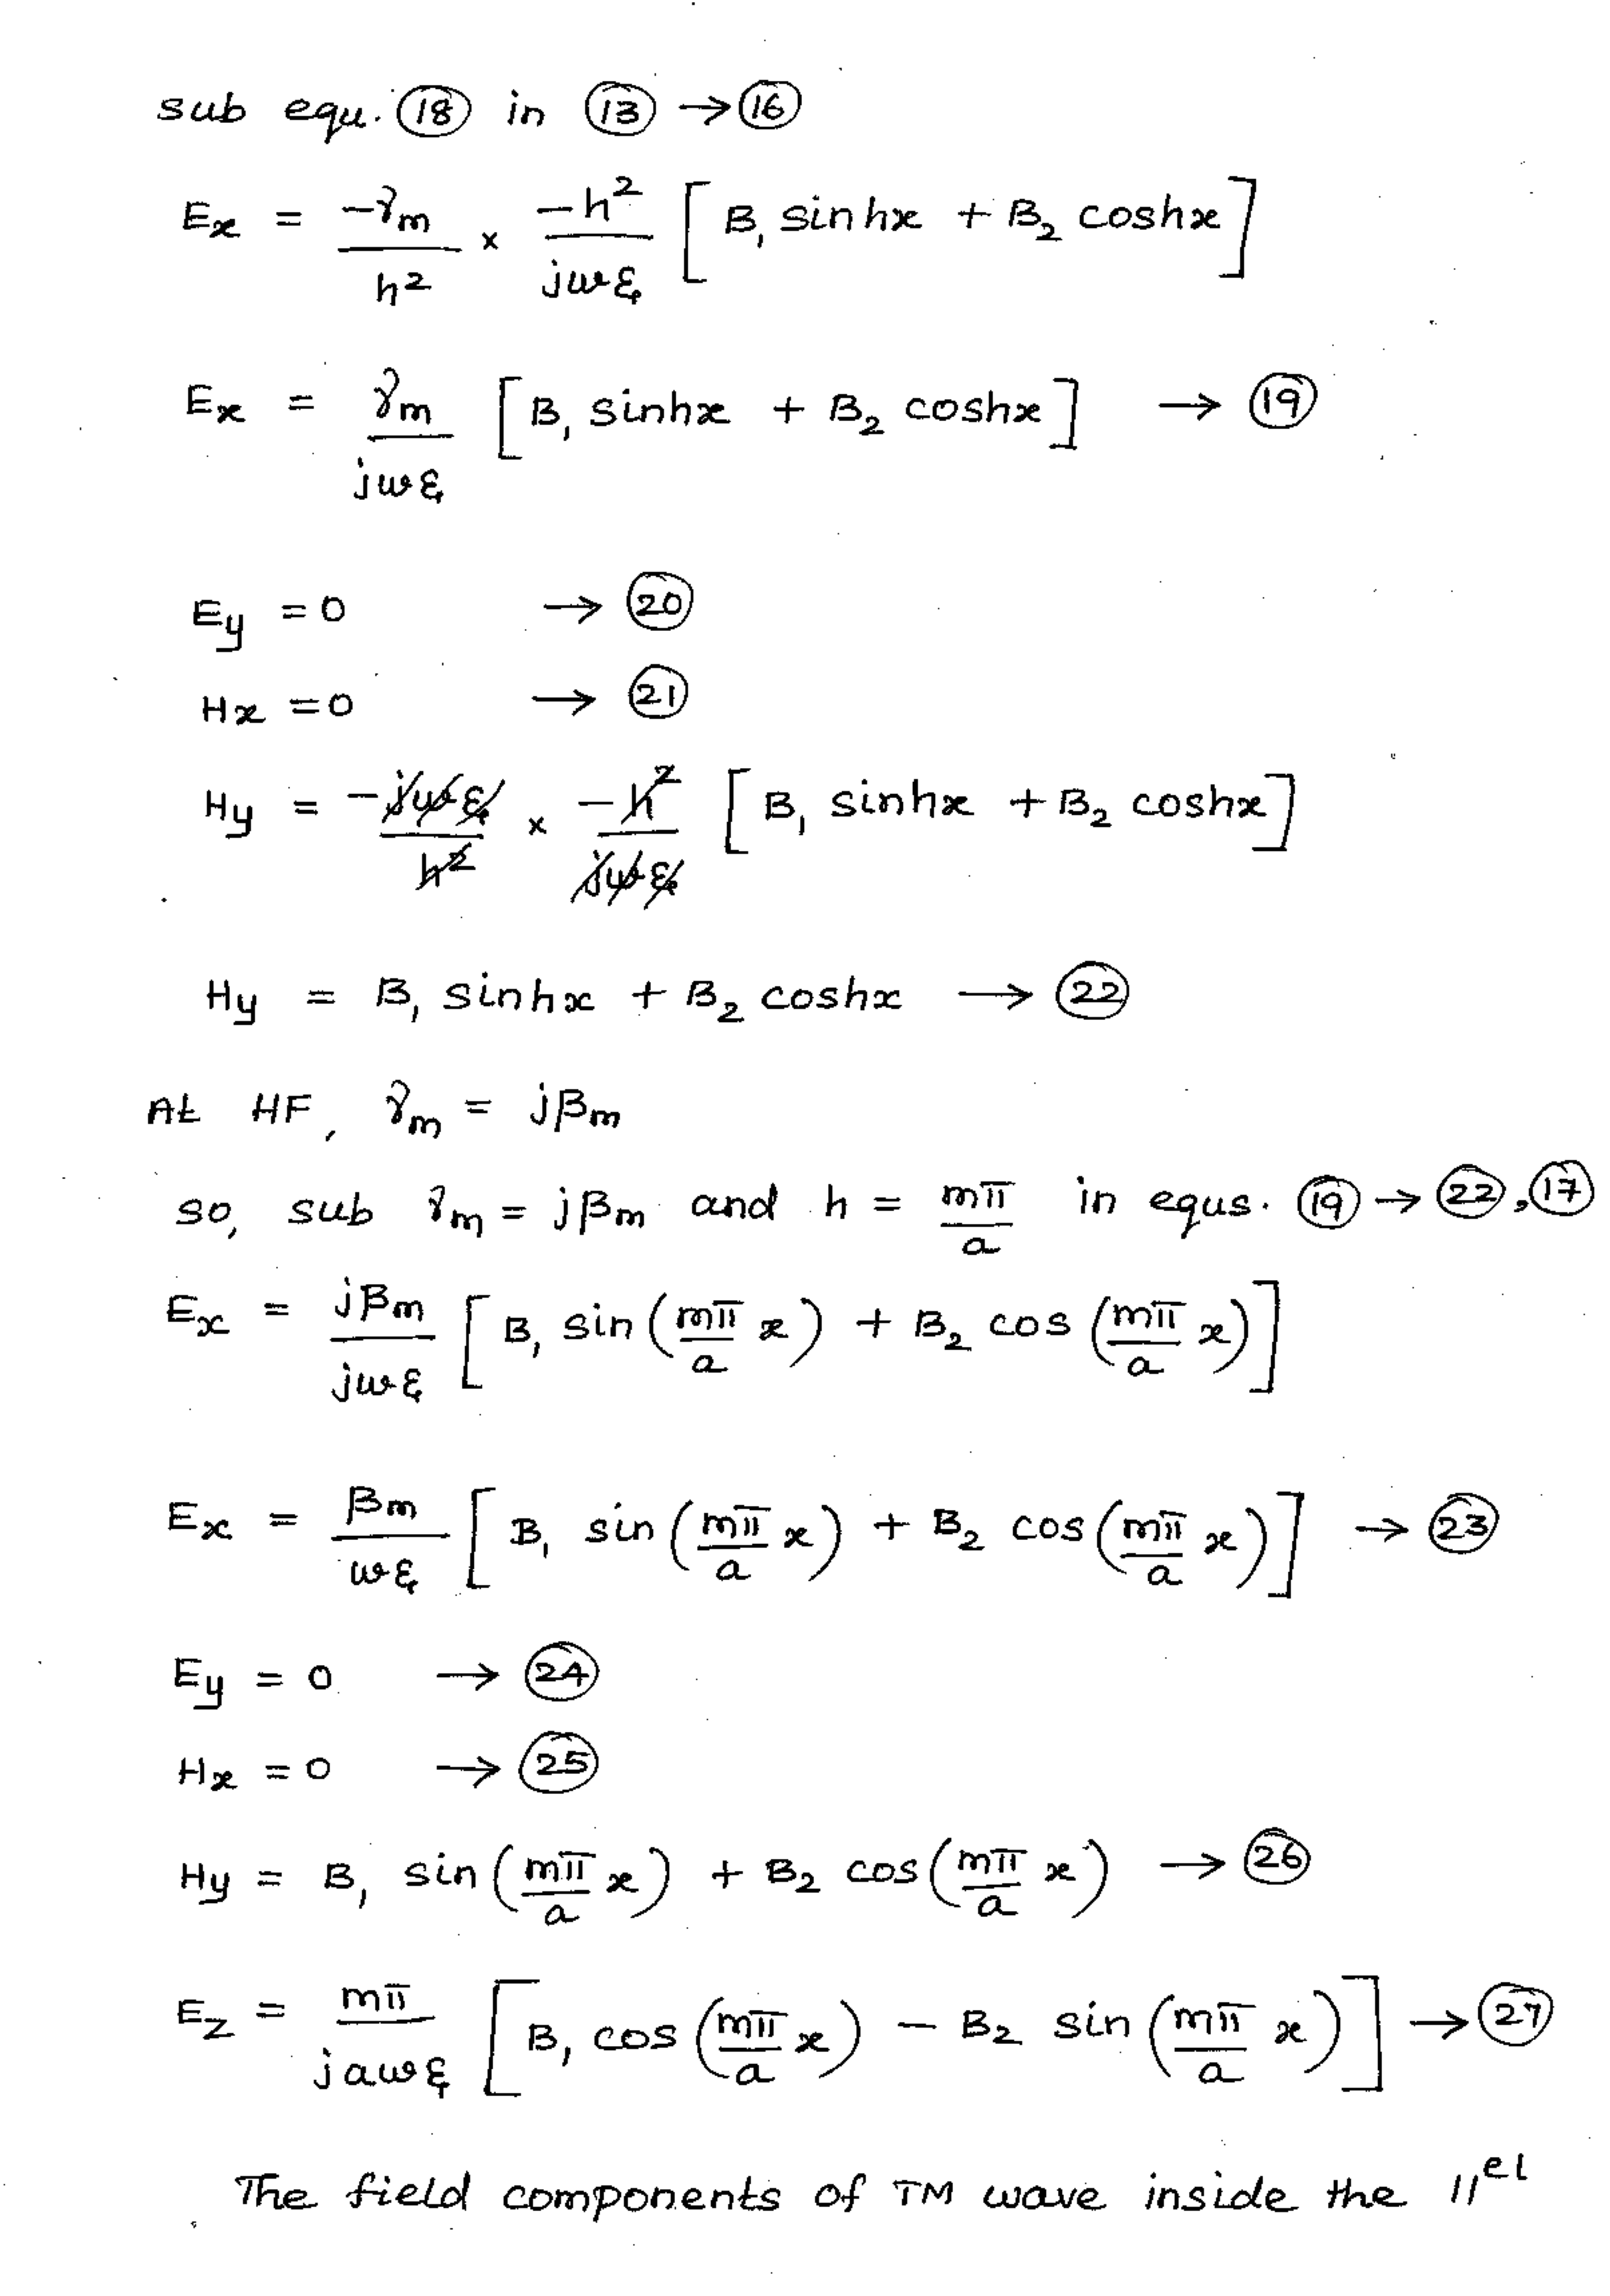 sub equ. (18) in (13) → (16)
Ex = -γm/h² × -h²/jωε [B₁ sinhx + B₂ coshx]
Ex = γm/jωε [B₁ sinhx + B₂ coshx] → (19)
Ey = 0 → (20)
Hx = 0 → (21)
Hy = -jωε/h² × -h²/jωε [B₁ sinhx + B₂ coshx]
Hy = B₁ sinhx + B₂ coshx → (22)
At HF, γm = jβm
so, sub γm = jβm and h = mπ/a in equs. (19) → (22), (17)
Ex = jβm/jωε [B₁ sin(mπ/a x) + B₂ cos(mπ/a x)]
Ex = βm/ωε [B₁ sin(mπ/a x) + B₂ cos(mπ/a x)] → (23)
Ey = 0 → (24)
Hx = 0 → (25)
Hy = B₁ sin(mπ/a x) + B₂ cos(mπ/a x) → (26)
Ez = mπ/jaωε [B₁ cos(mπ/a x) - B₂ sin(mπ/a x)] → (27)
The field components of TM wave inside the ||el